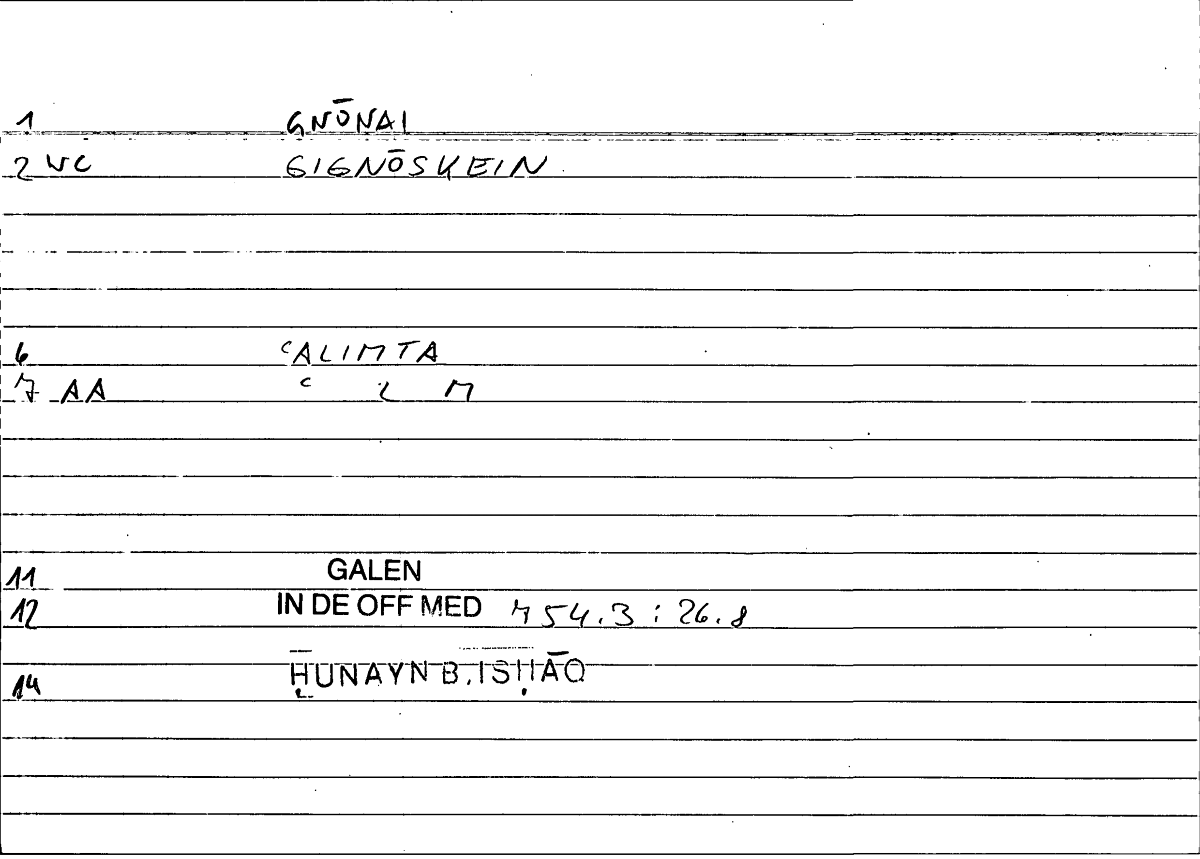 1 GNŌNAI
2 VC GIGNŌSKEIN
6 ʿALIMTA
7 AA ʿ L M
11 GALEN
12 IN DE OFF MED 754.3 : 26.8
14 ḤUNAYN B. ISḤĀQ